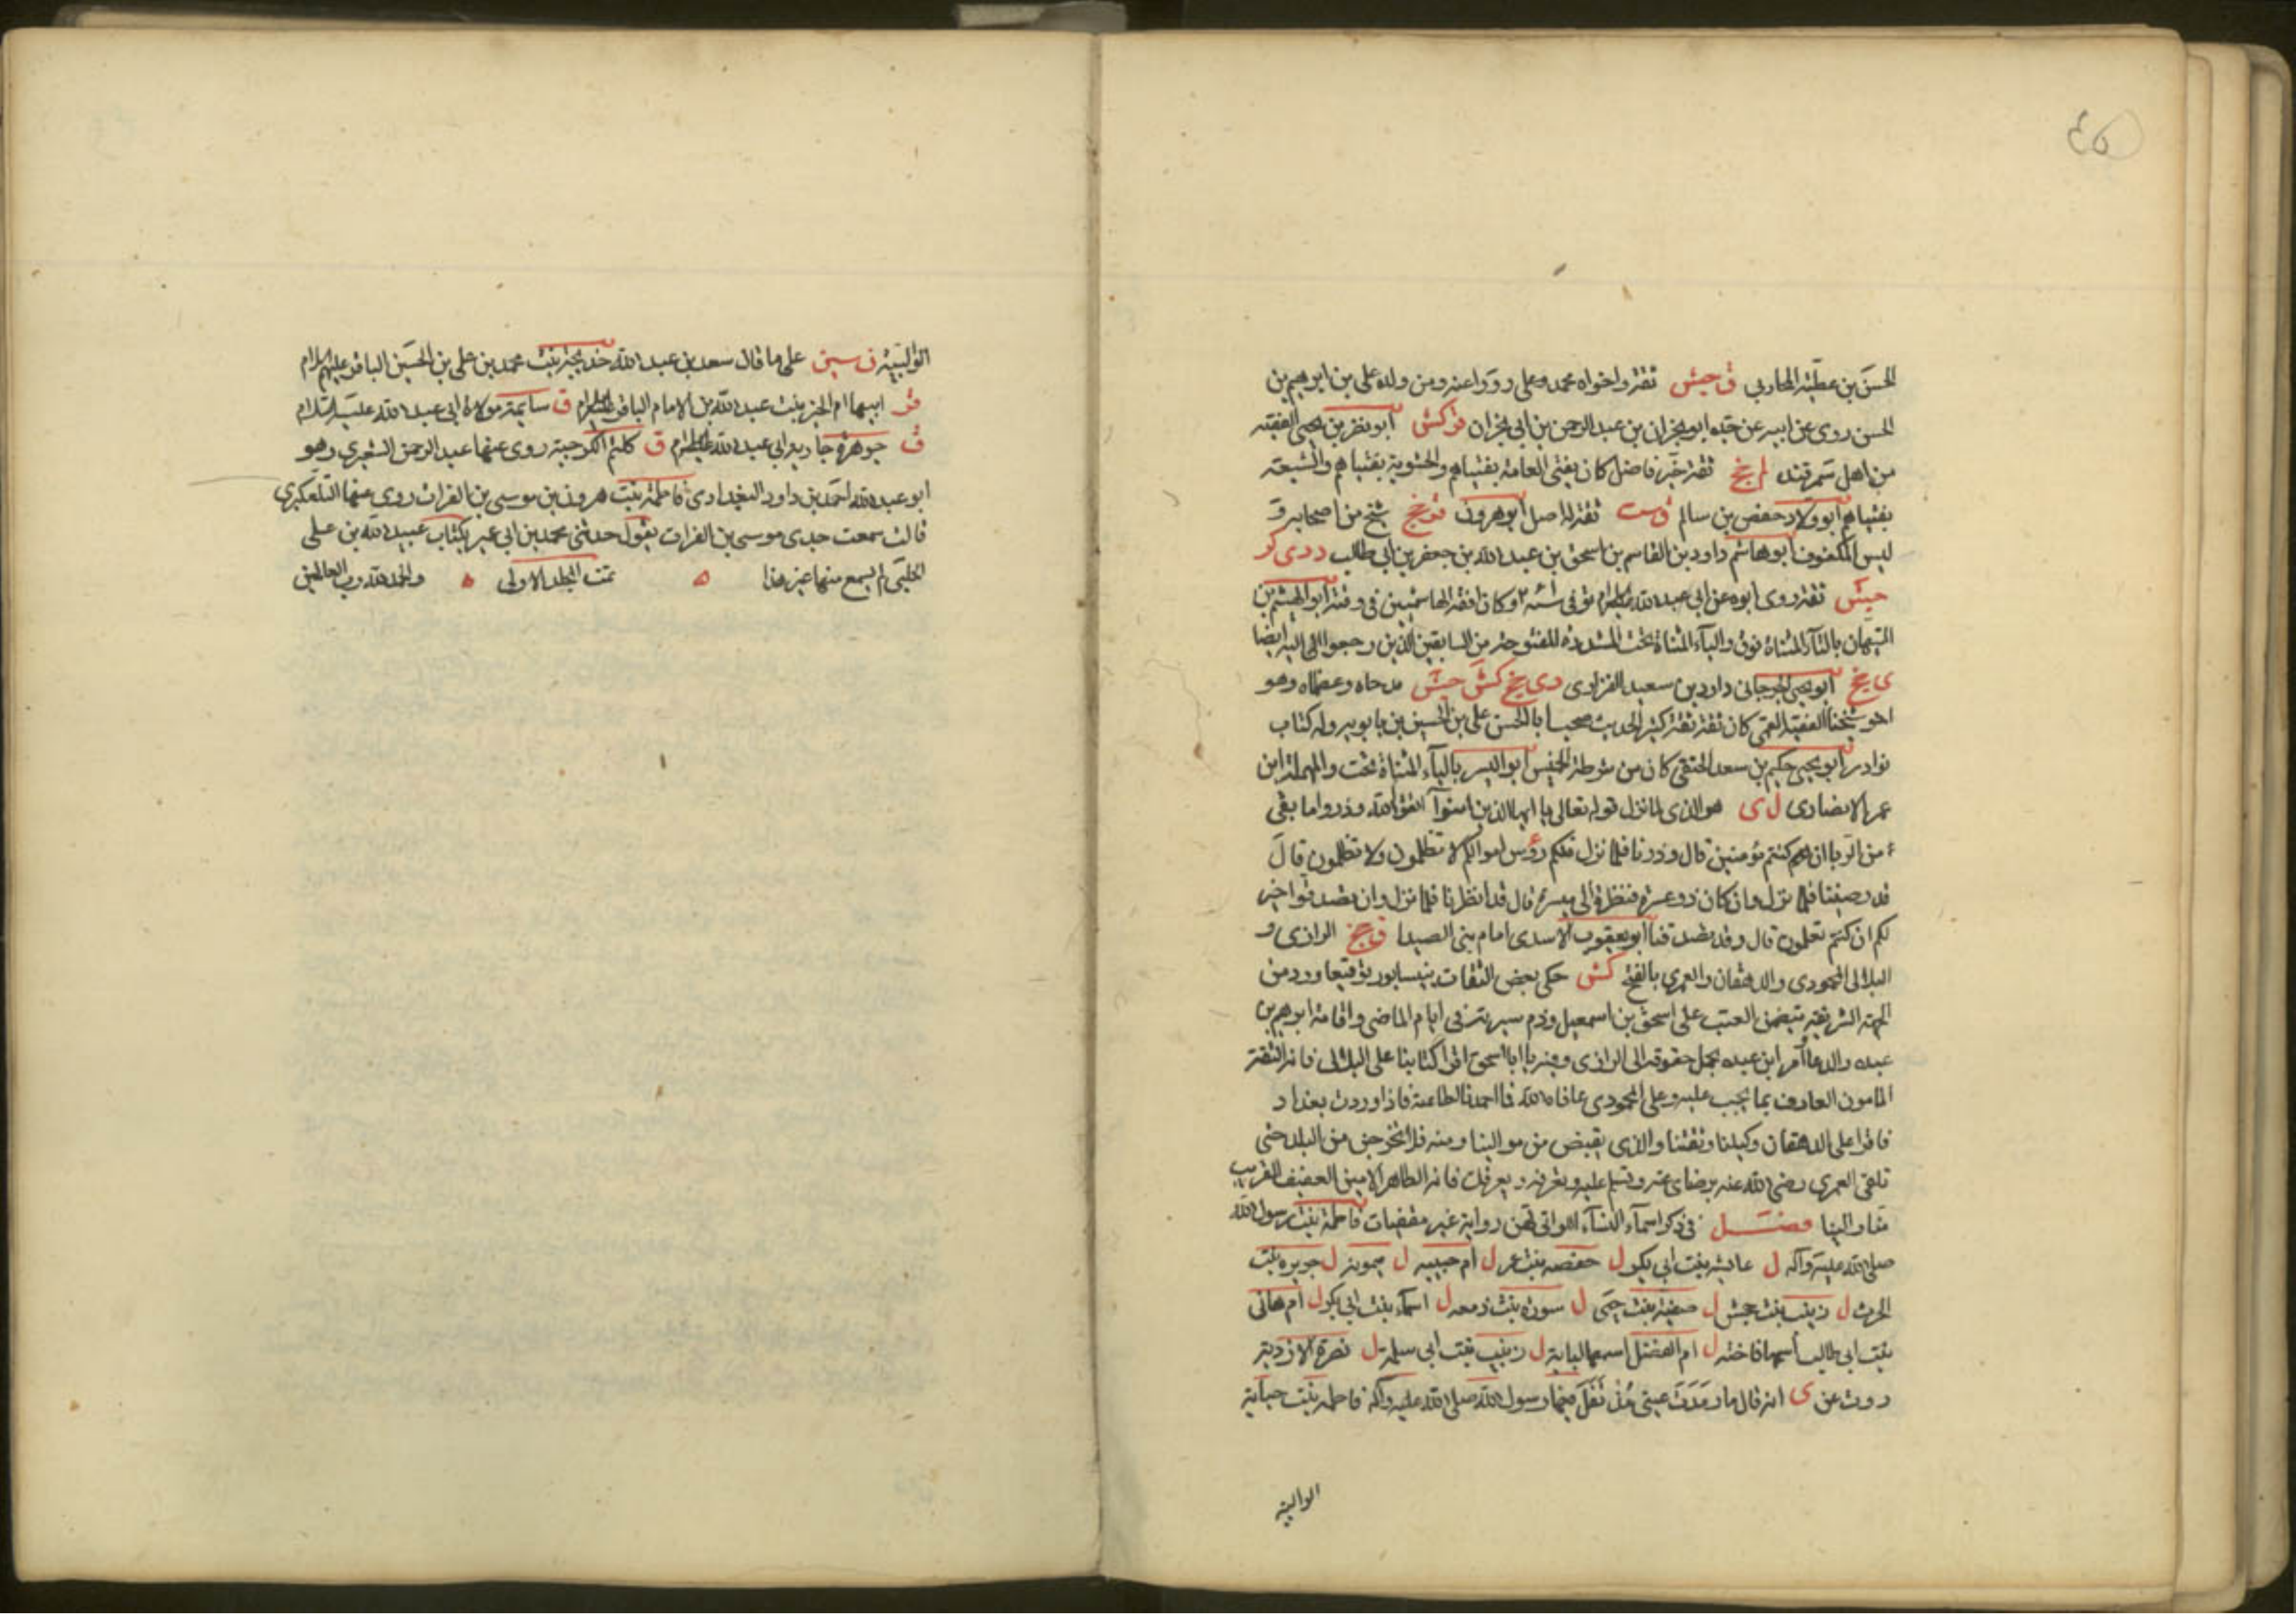 ٤٥
الحسن بن عطية المحاربي ق جش ثقة واخواه محمد وعلى رووا عنه ومن ولده على بن ابرهيم بن
الحسن روى عن ابيه عن جده ابو نجران بن عبد الرحمن بن ابي نجران قر كش ابو نصر بن يحيى الفقيه
من اهل سمرقند لم جخ ثقة خير فاضل كان يفتي العامة بفتياهم والحشوية بفتياهم والشيعة
بفتياهم ابو ولاد حفص بن سالم ق ست ثقة له اصل ابو هرون قر جخ شيخ من اصحابه و
ليس المكفوف ابو هاشم داود بن القاسم بن اسحق بن عبد الله بن جعفر بن ابي طالب د دى كر
جش ثقة روى ابوه عن ابي عبد الله عليه السلام توفى وكان افقه الهاشميين في وقته ابو الهيثم بن
التيهان بالتاء المثناة فوق والياء المثناة تحت المشددة المفتوحة من السابقين الذين رجعوا الى اليه ايضا
ى جخ ابو يحيى الجرجاني داود بن سعيد الفزارى دى جخ كش جش مدحاه وعظماه وهو
اخو شيخنا الفقيه القمى كان ثقة ثقة كثير الحديث صحب ابا الحسن على بن الحسين بن بابويه وله كتاب
نوادر ابو يحيى حكيم بن سعد الحنفي كان من شرطة الخميس ابو اليسر بالياء المثناة تحت والمهملة ابن
عمر الانصارى ل ى هو الذى لما نزل قوله تعالى يا ايها الذين امنوا اتقوا الله وذروا ما بقى
من الربا ان كنتم مؤمنين قال وذرنا فلما نزل فلكم رؤس اموالكم لا تظلمون ولا تظلمون قال
قد رضينا فلما نزل وان كان ذو عسرة فنظرة الى ميسرة قال قد انظرنا فلما نزل وان تصدقوا خير
لكم ان كنتم تعلمون قال وقد تصدقنا ابو يعقوب الاسدى امام بني الصيدا ق جخ الرازى و
البلالى المحمودى والدهقان والعمرى بالفتح كش حكى بعض الثقات بنيسابور توقيعا ورد من
الجهة الشريفة يتضمن العتب على اسحق بن اسمعيل وذم سيرته في ايام الماضى واقامة ابرهيم بن
عبده والدعا وامر ابن عبده بحمل حقوقه الى الرازى وفيه يا ابا اسحق اقرا كتابنا على البلالى فانه الثقة
المامون العارف بما يجب عليه وعلى المحمودى عافاه الله فما احمدنا لطاعته فاذا وردت بغداد
فاقرا على الدهقان وكيلنا وثقتنا والذى يقبض من موالينا ومنه فلا تخرجن من البلد حتى
تلقى العمرى رضى الله عنه برضاى عنه وتسلم عليه وتعرفه ويعرفك فانه الطاهر الامين العفيف القريب
منا والينا فصل في ذكر اسماء النساء اللواتى لهن رواية غير مقضيات فاطمة بنت رسول الله
صلى الله عليه وآله ل عايشه بنت ابى بكر ل حفصه بنت عمر ل ام حبيبه ل ميمونه ل جويره بنت
الحرث ل زينب بنت جحش ل صفيه بنت حيى ل سوده بنت زمعه ل اسماء بنت ابى بكر ل ام هانى
بنت ابى طالب اسمها فاخته ل ام الفضل اسمها لبابة ل زينب بنت ابى سلمة ل نضرة الازديه
روت عن ى انه قال ما رمدت عينى مذ تفل فيها رسول الله صلى الله عليه وآله فاطمه بنت حبابة
الوالبيه
الوالبيه ن سين على ما قال سعد بن عبد الله خديجه بنت محمد بن على بن الحسين الباقر عليهم السلام
قر ابيها ام الخير بنت عبد الله بن الامام الباقر عليه السلام ق سايمه مولاة ابى عبد الله عليه السلام
ق جوهره جارية ابى عبد الله عليه السلام ق كلثم الكرخية روى عنها عبد الرحمن الشعيرى وهو
ابو عبد الله احمد بن داود البغدادى فاطمة بنت هرون بن موسى بن الفرات روى عنها التلعكبرى
قالت سمعت جدى موسى بن الفرات يقول حدثنى محمد بن ابى عمير بكتاب عبيد الله بن على
الحلبي لم يسمع منها غير هذا ه تمت المجلد الاولى ه والحمد لله رب العالمين